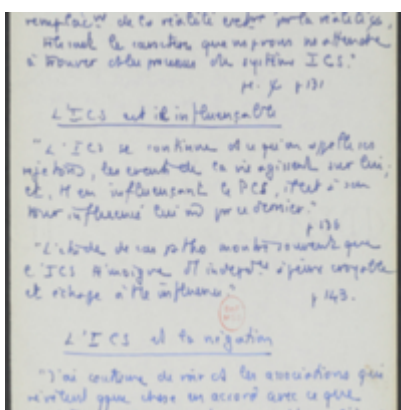 remplac^nt de la réalité extér^re par la réalité ψ,
de la fonction que nous nous attendre
à trouver et les processus du système ICS."
p 131
L'ICS est il influençable
"L'ICS se continue et ce qu'on appelle ses
rejetons, les events de la vie agissent sur lui,
et, tt en influençant le PCS, il est à son
tour influencé lui m^ par ce dernier."
p 138
"L'étude de cas patho montre souvent que
l'ICS témoigne d' à peine croyable
et échappe à tte influence."
p 143.
L'ICS et la négation
"J'ai coutume de voir ds les associations qui
révèlent qque chose en accord avec ce que